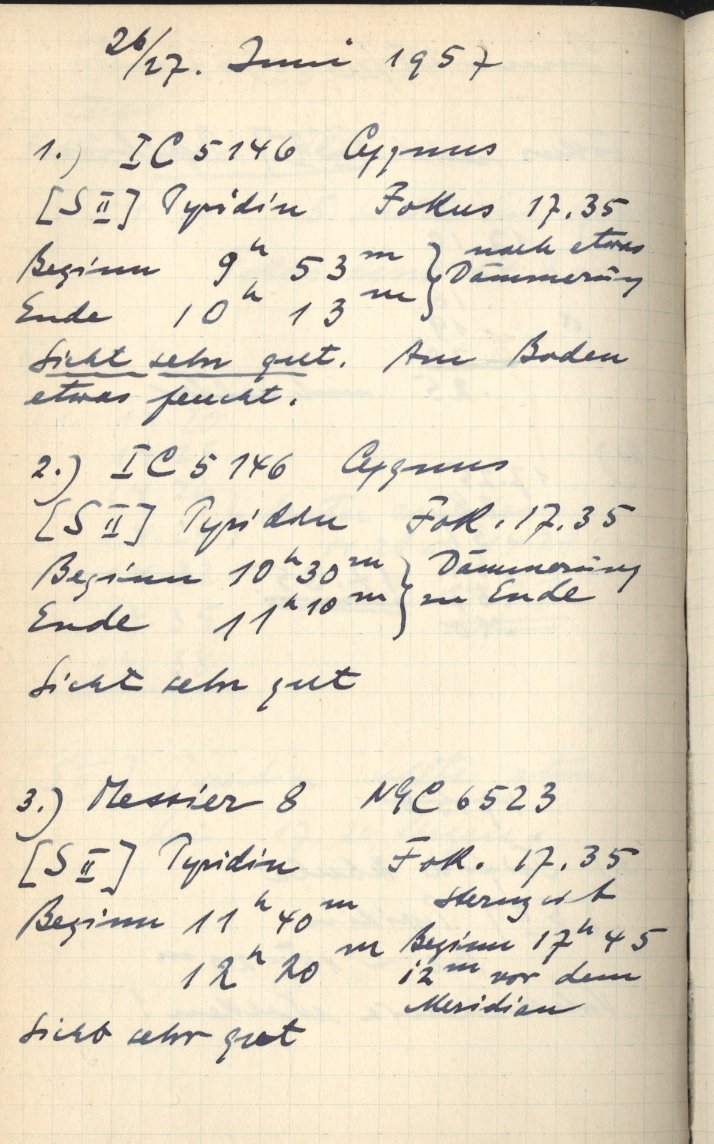 26/27. Juni 1957
1.) IC 5146 Cygnus
[S II] Pyridin Fokus 17.35
Beginn 9h 53m } noch etwas
Ende 10h 13m } Dämmerung
Sicht sehr gut. Am Boden
etwas feucht.
2.) IC 5146 Cygnus
[S II] Pyridin Fok. 17.35
Beginn 10h30m } Dämmerung
Ende 11h10m } zu Ende
Sicht sehr gut
3.) Messier 8 NGC 6523
[S II] Pyridin Fok. 17.35
Sternzeit
Beginn 11h 40m Beginn 17h 45
12h 20m 12m vor dem
Meridian
Sicht sehr gut